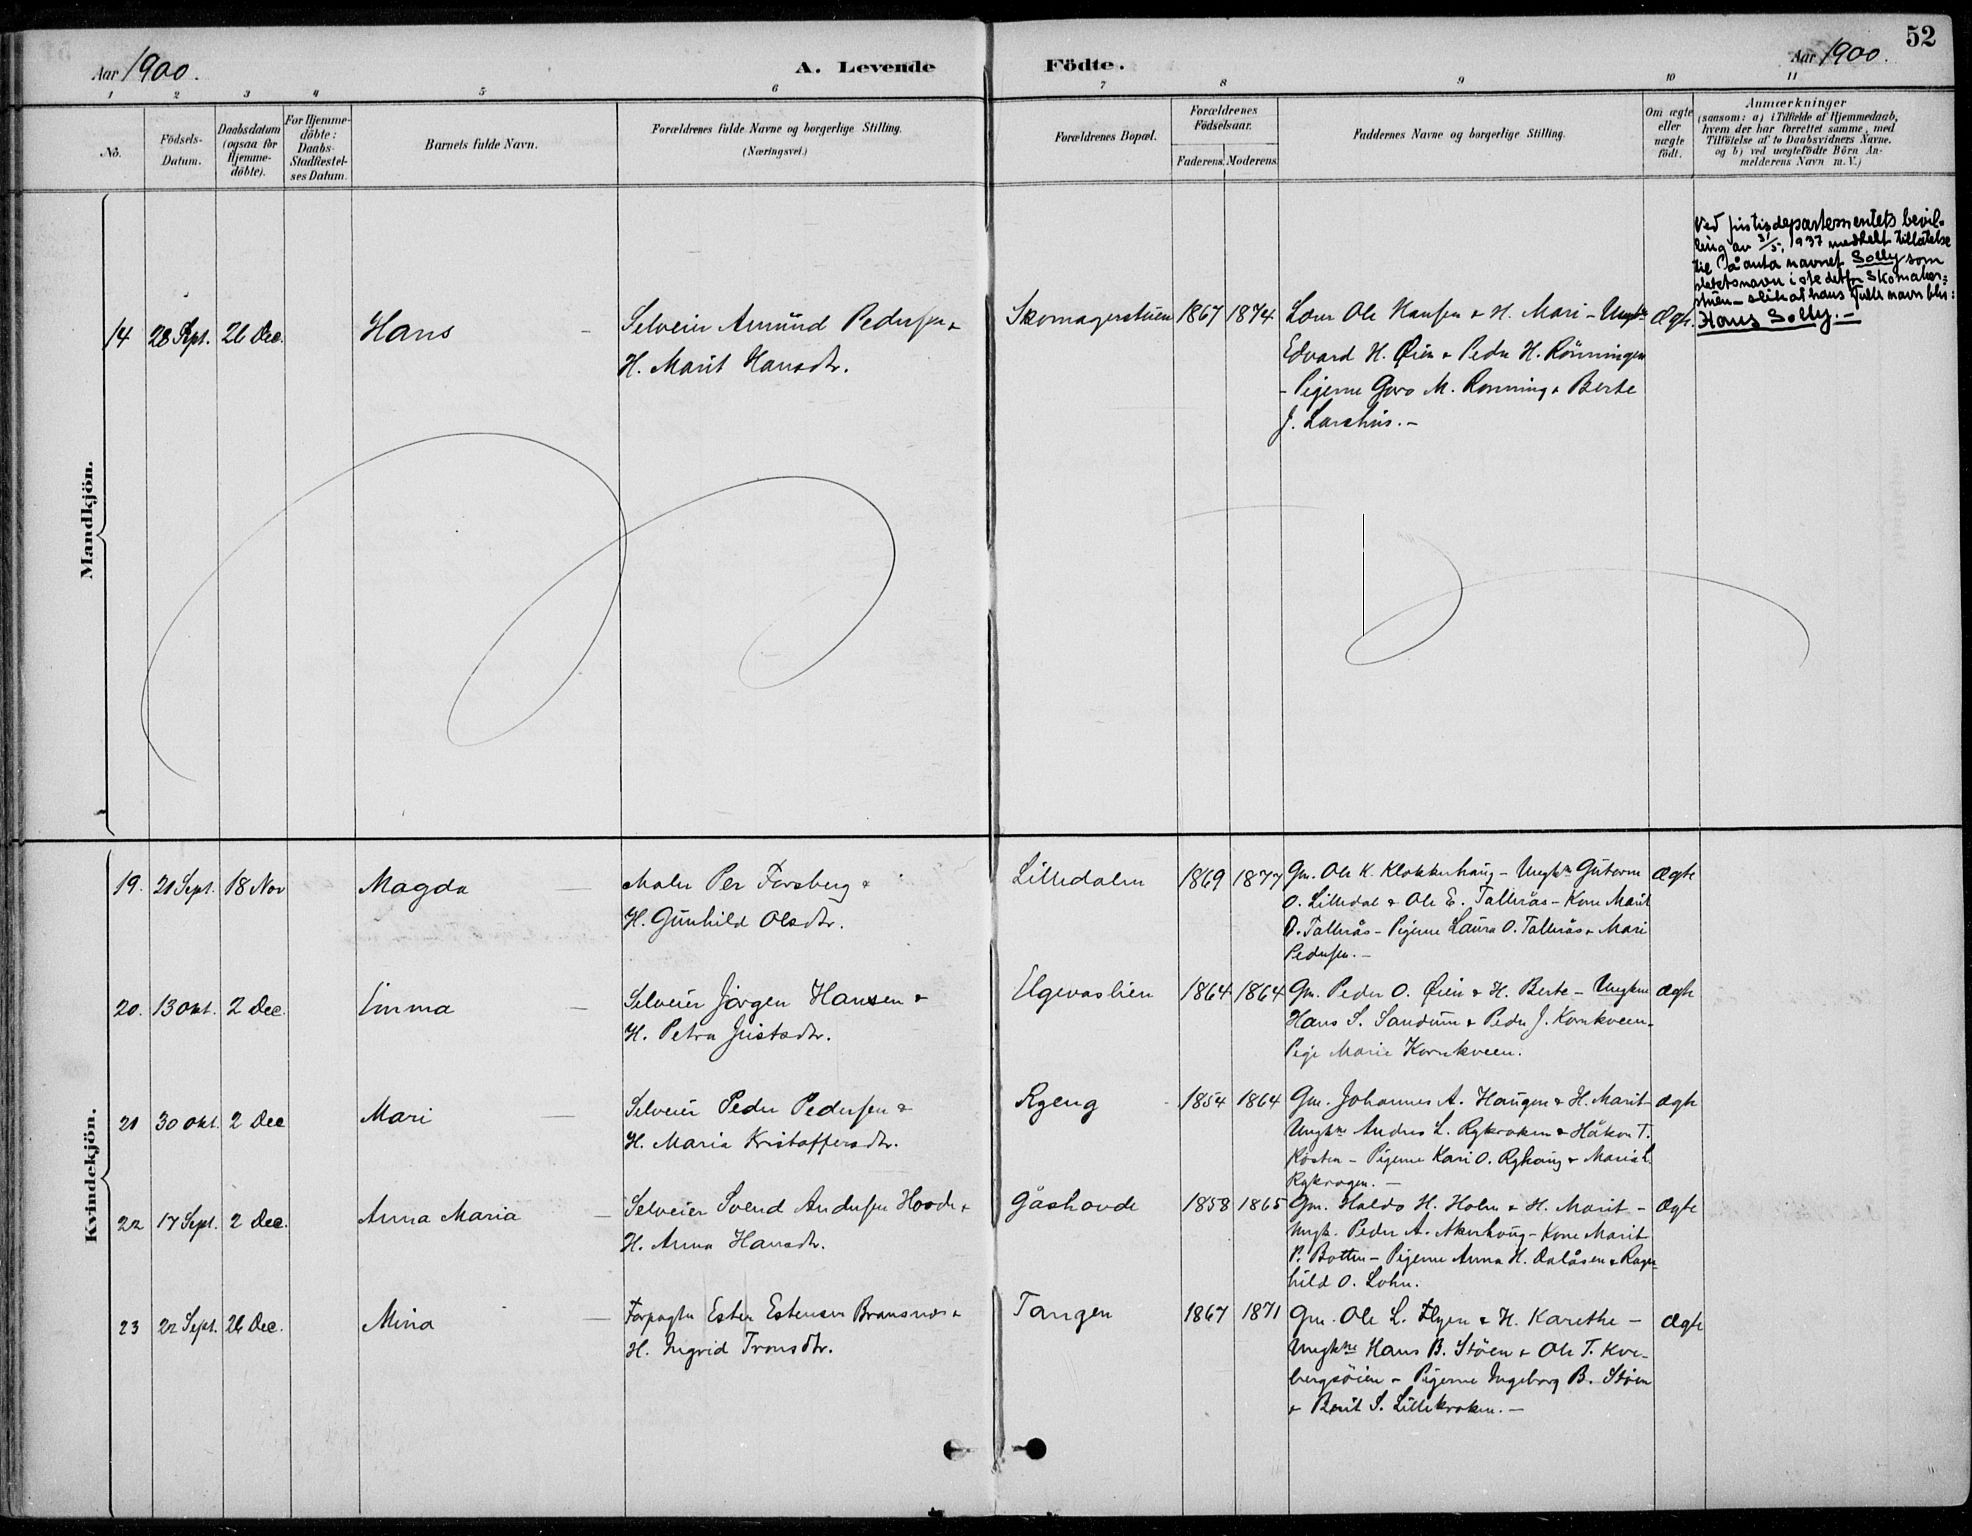 52
Aar 1900.
A. Levende Födte.
Aar 1900.
1 2 3 4 5 6 7 8 9 10 11
No.
Födsels-Datum.
Daabsdatum (ogsaa for Hjemme-döbte).
For Hjemme-döbte: Daabs-Stadfæstel-ses Datum.
Barnets fulde Navn.
Forældrenes fulde Navne og borgerlige Stilling.
(Næringsvei.)
Forældrenes Bopæl.
Forældrenes Födselsaar.
Faderens. Moderens.
Faddernes Navne og borgerlige Stilling.
Om ægte eller uægte födt.
Anmærkninger
(saasom: a) i Tilfælde af Hjemmedaab,
hvem der har forrettet samme, med
Tilföielse af to Daabsvidners Navne.
og b) ved uægtefödte Börn An-
melderens Navn m. V.)
Mandkjön.
Ved justisdepartementets bevil-
ling av 31/5. 1937 meddelt tillatelse
til å anta navnet Solly som
slektsnavn i stedet for Skomaker-
stuen – slik at hans fulle navn blir:
Hans Solly. –
14 28 Sept. 26 Dec. Hans – Selveier Amund Pedersen & Skomagerstuen 1867 1874 Ole Hansen & H. Mari – Ungkn Ægte.
H. Marit Hansdtr. Edvard H. Øien & Peder H. Rönningen
– Pigerne Guro M. Rønning & Berte
J. Larshus. –
Kvindekjön.
19. 21 Sept. 18 Nov Magda – Maler Per Forsberg & Lilledalen 1869 1877 Gm. Ole K. Klokkerhaug – Ungkn Guttorm Ægte
H. Gunhild Olsdtr. O. Lilledal & Ole E. Tallerås – Kone Marit
O. Tallerås – Pigerne Laura O. Tallerås & Mari
Pedersen. –
20. 13 Okt. 2 Dec. Emma – Selveier Jörgen Hansen & Elgevaslien 1864 1864 Gm. Peder O. Øien & H. Berte – Ungkne Ægte
H. Petra Justsdtr. Hans S. Sandum & Peder J. Kornkveen –
Pige Marie Kornkveen.
21 30 Okt. 2 Dec Mari – Selveier Peder Pedersen & Ryeng 1854 1864 Gm. Johannes A. Haugen & H. Marit – Ægte
H. Maria Kristoffersdtr. Ungkne Anders L. Rykroken & Håkon T.
Kosten – Pigerne Kari O. Ryhaug & Marie L.
Rykrogen. –
22 17 Sept. 2 Dec. Anna Maria – Selveier Svend Andersen Hovde & Gåshovde 1858 1865 Gm. Haldo H. Holm & H. Marit – Ægte
H. Anna Hansdtr. Ungk. Peder A. Akerhaug – Kone Marit
P. Botten – Pigerne Anna H. Dalåsen & Ragn-
hild O. Lohn.
23 22 Sept. 26 Dec. Mina – Forpagter Esten Estensen Bransnes & Tangen 1867 1871 Gm. Ole L. Elgen & H. Karethe – Ægte
H. Ingrid Tronsdtr. Ungkne Hans B. Stöen & Ole T. Kve-
bergsöien – Pigerne Ingeborg B. Stöen
& Berit S. Lillekroken. –